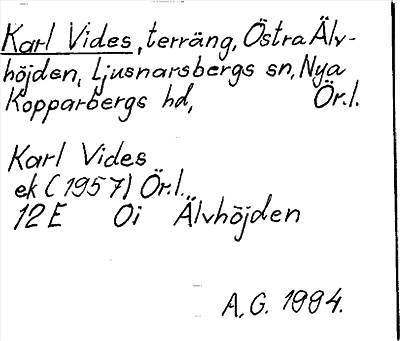 Karl Vides, terräng, Östra Älv-
höjden, Ljusnarsbergs sn, Nya
Kopparbergs hd, Ör.l.
Karl Vides
ek (1957) Ör.l.
12 E 0i Älvhöjden
A.G. 1994.